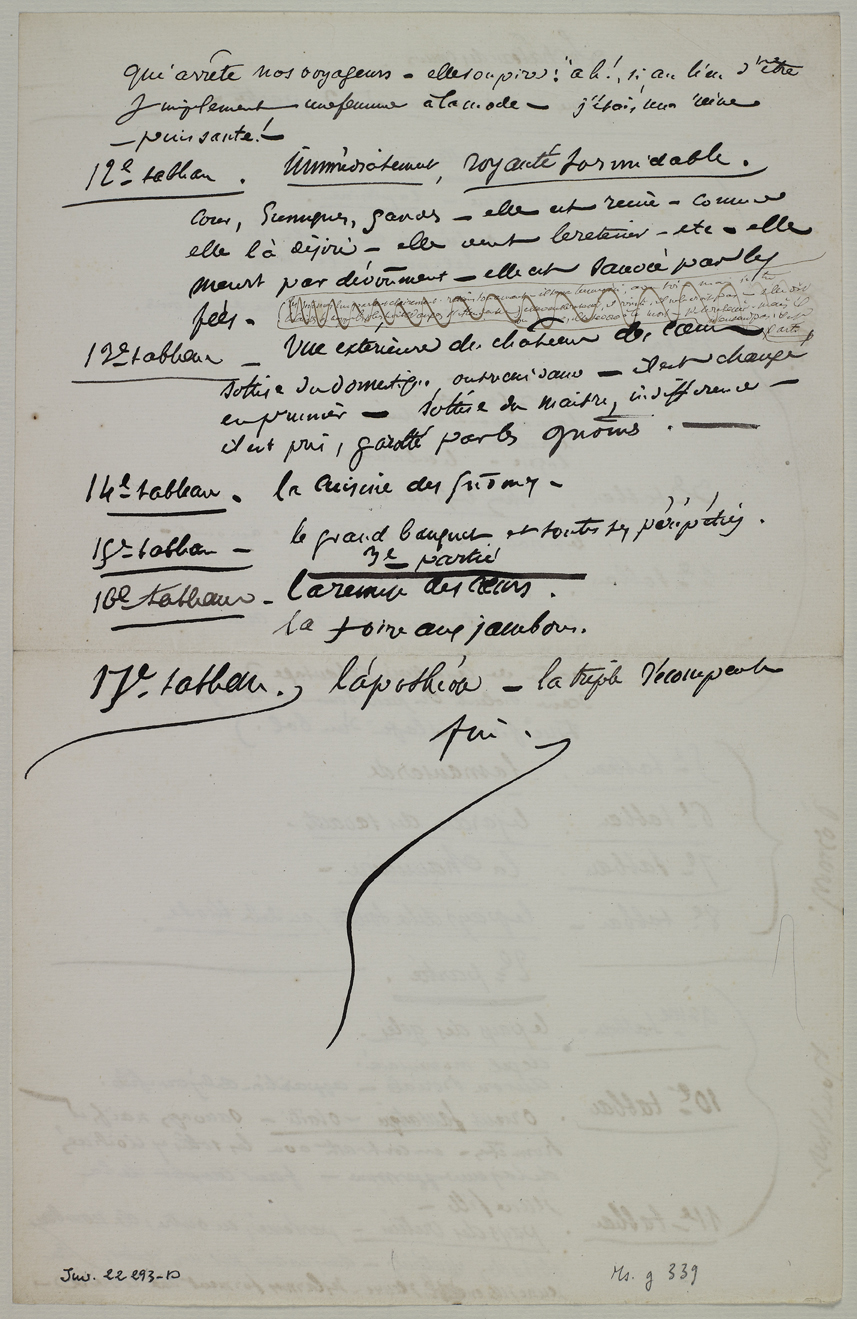 qui arrête nos voyageurs - elle soupire: "ah!, si au lieu d'être
simplement une femme à la mode - j'étais une reine
- puissante! -
12e tableau. Immédiatement, royauté formidable.
cour, Eunuques, gardes - elle est reine - comme
elle l'a désiré - elle veut le retenir - etc - elle
meurt par dévoument - elle est sauvée par les
fées -
13e tableau - Vue extérieure du château des cœurs
sottise du domestique, - il est changé
en prunier - sottise du maître, indifférence -
il est pris, garotté par les gnômes.
14e tableau. la cuisine des gnômes -
15e tableau - le grand banquet et toutes ses péripéties.
3e partie
16e tableau - la remise des cœurs.
la foire aux jambons.
17e tableau. l'apothéose - la triple récompense
fin.
Inv. 22 293-D
Ms. g 339